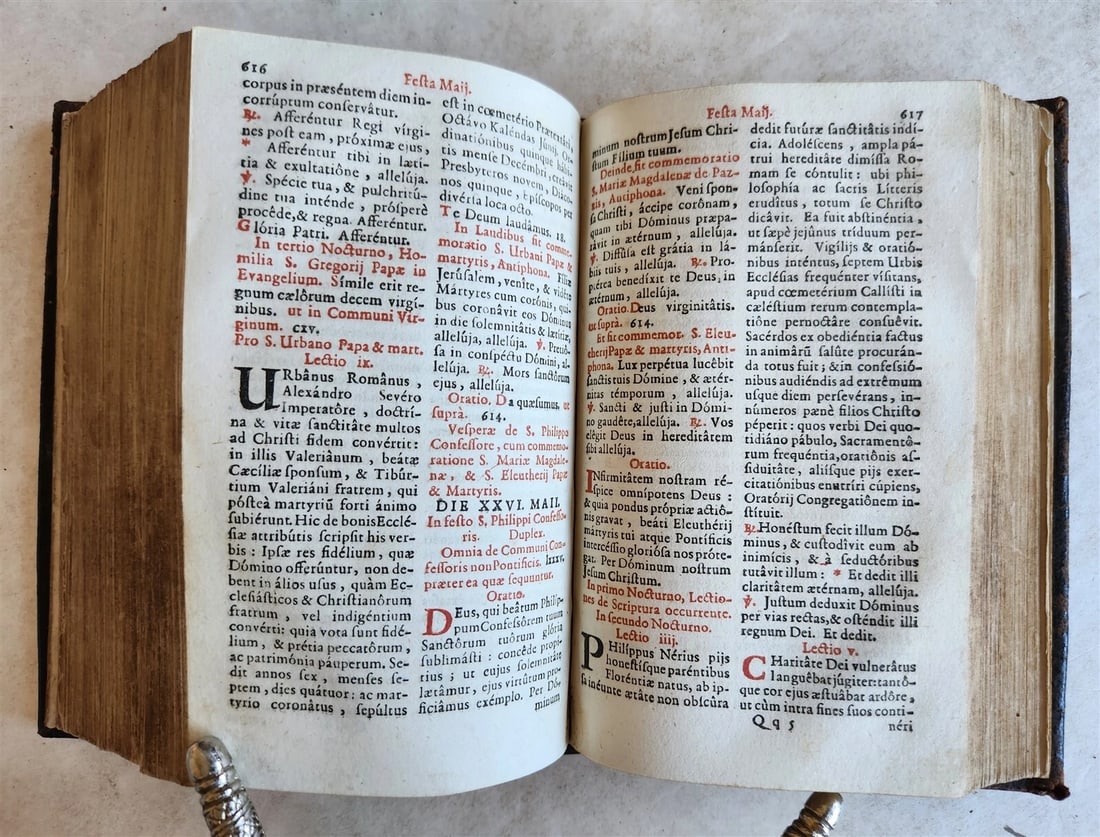 616
Feſta Maij.
corpus in præséntem diem in-
corrúptum conſervâtur.
℟. Afferéntur Regi vírgi-
nes poſt eam, próximæ ejus,
* Afferéntur tibi in lætí-
tia & exultatiône, allelúja.
℣. Spécie tua, & pulchritú-
dine tua inténde, próſperè
procéde, & regna. Afferéntur.
Glória Patri. Afferéntur.
In tertio Nocturno, Ho-
milia S. Gregorij Papæ in
Evangelium. Símile erit re-
gnum cælôrum decem virgí-
nibus. ut in Communi Vir-
ginum. cxv.
Pro S. Urbano Papa & mart.
Lectio ix.
URbânus Români​us,
Alexándro Sevéro
Imperatôre, doctrí-
na & vitæ ſanctitâte multos
ad Chriſti fidem convértit:
in illis Valeriânum, beátæ
Cæcíliæ ſponſum, & Tibúr-
tium Valeriáni fratrem, qui
póſteà martyriũ forti ánimo
ſubiérunt. Hic de bonis Ecclé-
ſiæ attribútis ſcripſit his ver-
bis: Ipſæ res fidélium, quæ
Dómino offerúntur, non de-
bent in álios uſus, quàm Ec-
cleſiáſticos & Chriſtianôrum
fratrum, vel indigéntium
convérti: quia vota ſunt fidé-
lium, & prétia peccatôrum,
ac patrimónia páuperum. Se-
dit annos ſex, menſes ſe-
ptem, dies quátuor: ac mar-
tyrio coronâtus, ſepúltus
eſt in cœmetério Prætextáti,
Octávo Kaléndas Júnij. Or-
dinatiónibus quinque habi-
tis menſe Decémbri, creávit
Presbyteros novem, Diáco-
nos quinque, Epíſcopos per
divérſa loca octo.
Te Deum laudâmus. 18.
In Laudibus fit comme-
moratio S. Urbani Papæ &
martyris, Antiphona. Fíliæ
Jerúſalem, veníte, & vidéte
Mártyres cum corónis, qui-
bus coronâvit eos Dóminus
in die ſolemnitâtis & lætítiæ,
allelúja, allelúja. ℣. Pretió-
ſa in conſpéctu Dómini, al-
lelúja. ℟. Mors ſanctôrum
ejus, allelúja.
Oratio. Da quæſumus. ut
ſuprà. 614.
Veſperæ de S. Philippo
Confeſſore, cum commemo-
ratione S. Mariæ Magdale-
næ, & S. Eleutherij Papæ
& Martyris.
DIE XXVI. MAII.
In feſto S. Philippi Confeſſo-
ris. Duplex.
Omnia de Communi Con-
feſſoris non Pontificis. lxxxv.
præter ea quæ ſequuntur.
Oratio.
DEus, qui beátum Philíp-
pum Confeſſôrem tuum,
Sanctôrum tuôrum glória
ſublimáſti: concéde propí-
tius; ut cujus ſolemnitáte
lætámur, ejus virtútum pro-
ficiâmus exémplo. Per Dó-
minum
Feſta Maij.
617
minum noſtrum Jeſum Chri-
ſtum Fílium tuum.
Deinde fit commemoratio
S. Mariæ Magdalenæ de Paz-
zis, Antiphona. Veni ſpon-
ſa Chriſti, áccipe corônam,
quam tibi Dóminus præpa-
rávit in ætérnum, allelúja.
℣. Diffúſa eſt grátia in lá-
biis tuis, allelúja. ℟. Pro-
ptérea benedíxit te Deus, in
ætérnum, allelúja.
Oratio. Deus virginitâtis.
ut ſuprà. 614.
Et fit commemor. S. Eleu-
therij Papæ & martyris, Anti-
phona. Lux perpétua lucébit
ſanctis tuis Dómine, & ætér-
nitas témporum, allelúja.
℣. Sancti & juſti in Dómi-
no gaudête, allelúja. ℟. Vos
elégit Deus in hereditâtem
ſibi allelúja.
Oratio.
INfirmitâtem noſtram ré-
ſpice omnípotens Deus:
& quia pondus própriæ actió-
nis gravat, beáti Eleuthérij
mártyris tui atque Pontíficis
interceſſio glorióſa nos próte-
gat. Per Dóminum noſtrum
Jeſum Chriſtum.
In primo Nocturno, Lectio-
nes de Scriptura occurrente.
In ſecundo Nocturno.
Lectio iiij.
PHilíppus Nérius pijs
honeſtíſque paréntibus
Floréntiæ natus, ab ip-
ſa ineúnte ætâte non obſcúra
dedit futúræ ſanctitâtis indí-
cia. Adoléſcens, ampla pá-
trui hereditâte dimíſſa Ro-
mam ſe cóntulit: ubi phi-
loſophía ac ſacris Lítteris
erudítus, totum ſe Chriſto
dicâvit. Ea fuit abſtinéntia,
ut ſæpè jejúnus tríduum per-
mánſerit. Vigílijs & oratió-
nibus inténtus, ſeptem Urbis
Eccléſias frequénter víſitans,
apud cœmetérium Callíſti in
cæléſtium rerum contempla-
tiône pernoctâre conſuêvit.
Sacérdos ex obediéntia factus
in animârũ ſalúte procurán-
da totus fuit; & in confeſſió-
nibus audiéndis ad extrêmum
uſque diem perſevérans, in-
números pænè fílios Chriſto
péperit: quos verbi Dei quo-
tidiáno pábulo, Sacramentô-
rum frequéntia, oratiónis aſ-
ſiduitâte, alíſque pijs exer-
citatiónibus enutríri cúpiens,
Oratórij Congregatiônem in-
ſtítuit.
℟. Honéſtum fecit illum Dó-
minus, & cuſtodívit eum ab
inimícis, & à ſeductóribus
tutâvit illum: * Et dedit illi
claritâtem ætérnam, allelúja.
℣. Juſtum deduxit Dóminus
per vias rectas, & oſténdit illi
regnum Dei. Et dedit.
Lectio v.
CHaritâte Dei vulnerâtus
languêbat júgiter: tantô-
que cor ejus æſtuâbat ardôre,
ut cùm intra fines ſuos conti-
Qq 5
néri